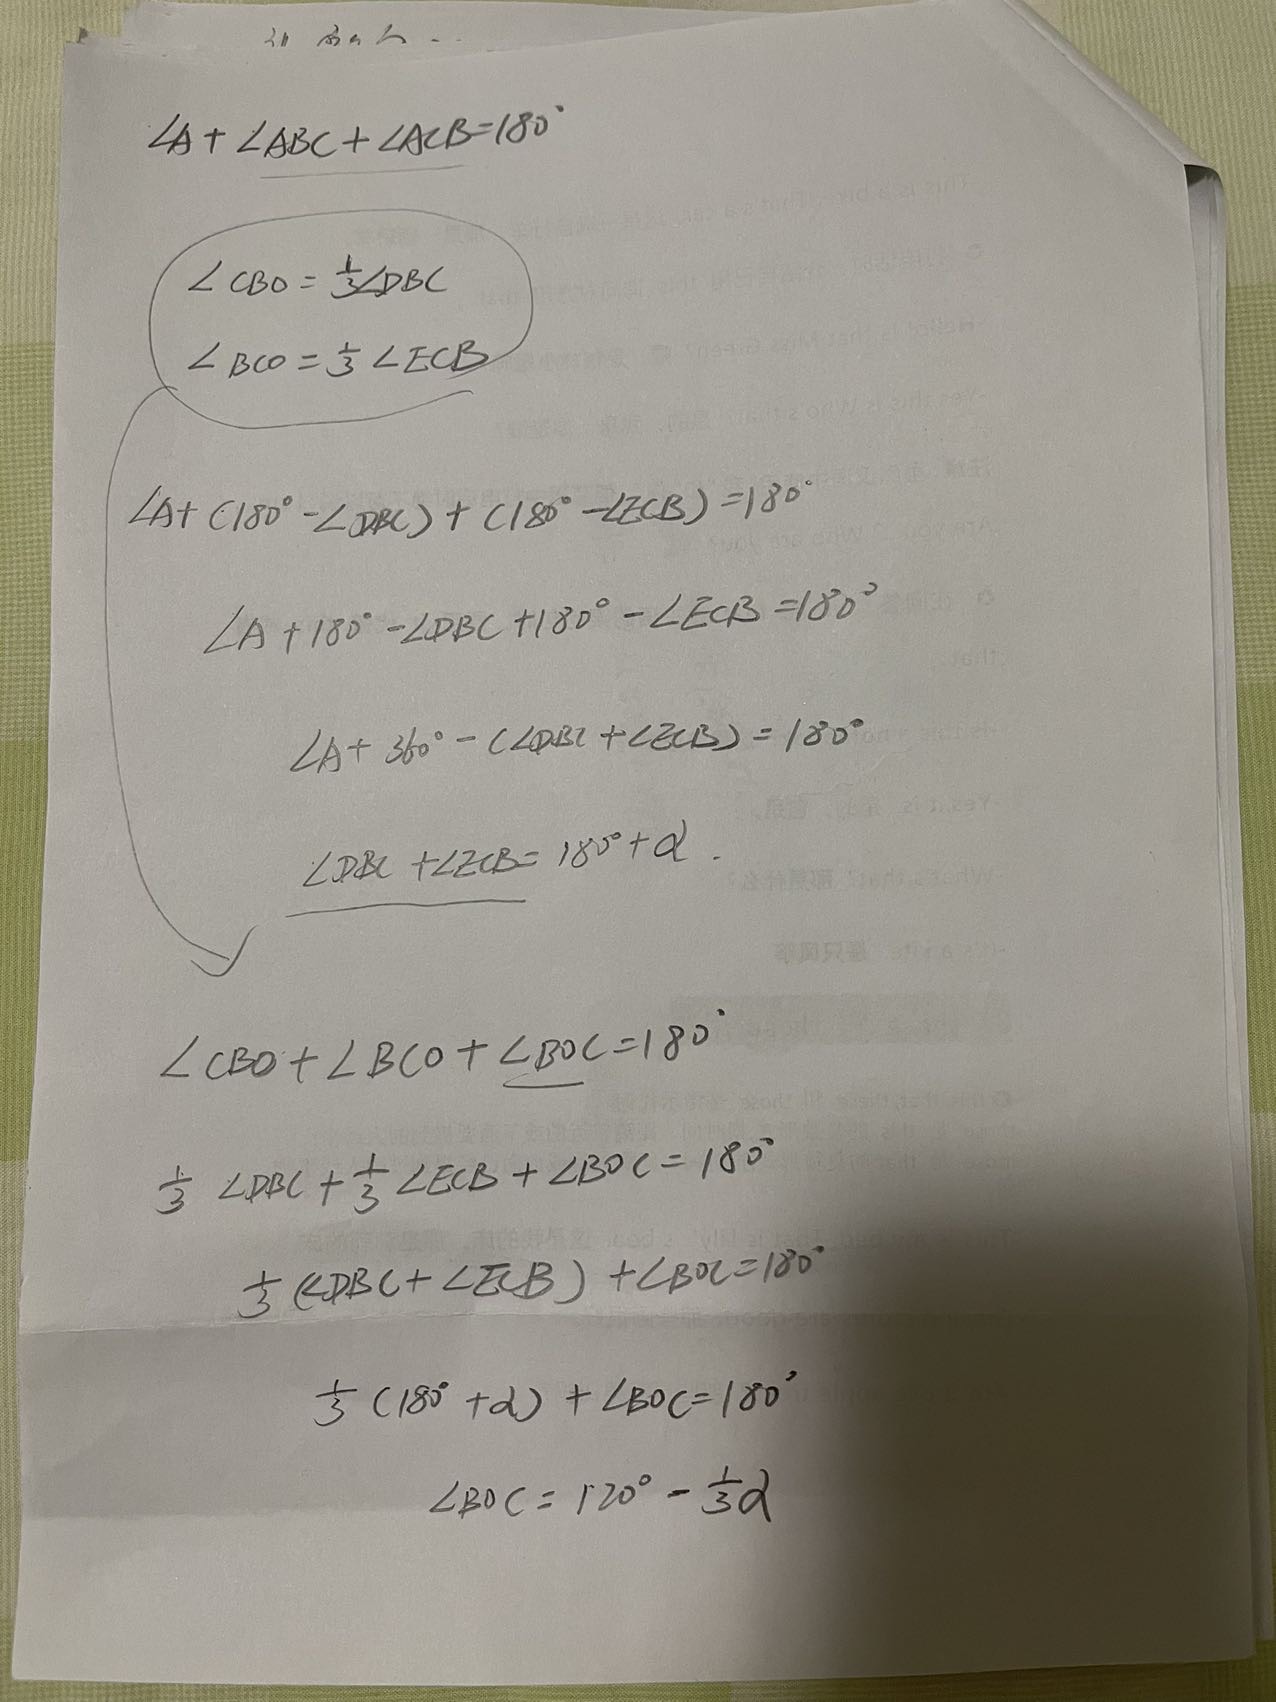 ∠A + ∠ABC + ∠ACB = 180°
∠CBO = 1/3∠DBC
∠BCO = 1/3 ∠ECB
∠A + (180° - ∠DBC) + (180° - ∠ECB) = 180°
∠A + 180° - ∠DBC + 180° - ∠ECB = 180°
∠A + 360° - (∠DBC + ∠ECB) = 180°
∠DBC + ∠ECB = 180° + α.
∠CBO + ∠BCO + ∠BOC = 180°
1/3 ∠DBC + 1/3 ∠ECB + ∠BOC = 180°
1/3 (∠DBC + ∠ECB) + ∠BOC = 180°
1/3 (180° + α) + ∠BOC = 180°
∠BOC = 120° - 1/3 α